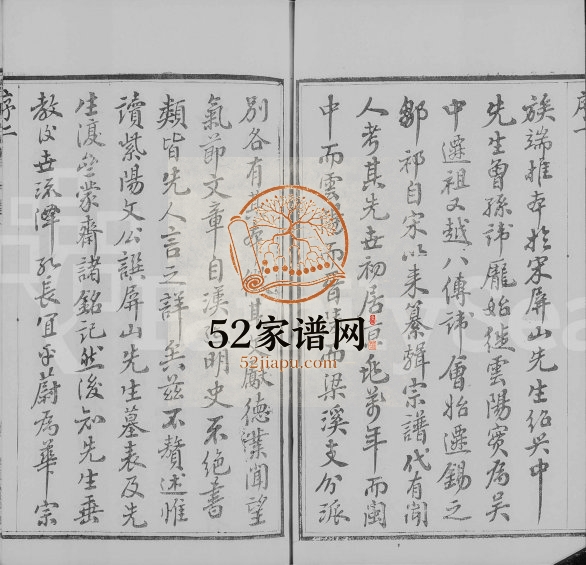 序一
族端推本於宋屏山先生紹興中
先生曾孫諱龐始徙雲陽實為吳
中遷祖又越八傳諱會始遷錫之
鄒祁自宋以來纂輯宗譜代有聞
人考其先世初居京兆萬年而閩
中而雲陽而晉陵而梁溪支分派
別各有其德業聞望
氣節文章自漢明史不絕書
類皆先人言之詳矣茲不贅述惟
讀紫陽文公譔屏山先生墓表及先
生復坐蒙齋諸銘記然後知先生垂
教後世流澤孔長宜乎蔚為華宗
序二
52家谱网
52jiapu.com